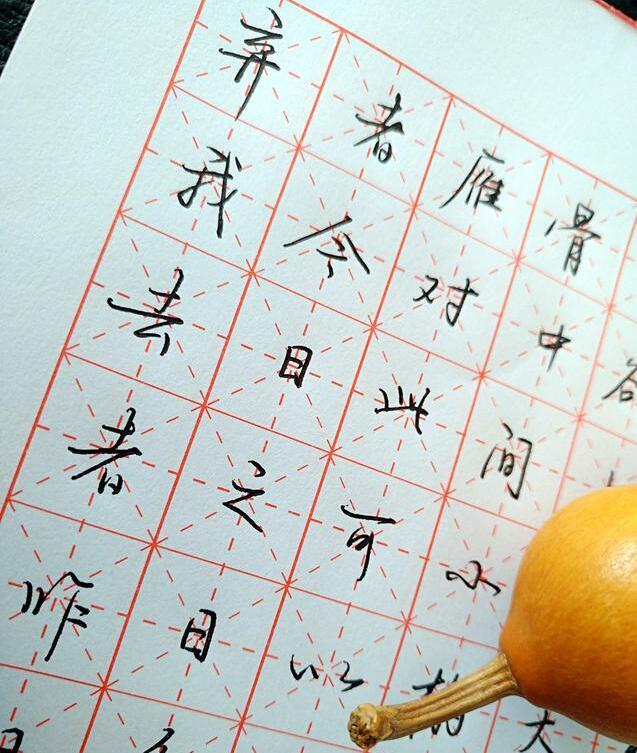 弃我去者昨日
者今日之日
雁对此可以
骨中间小